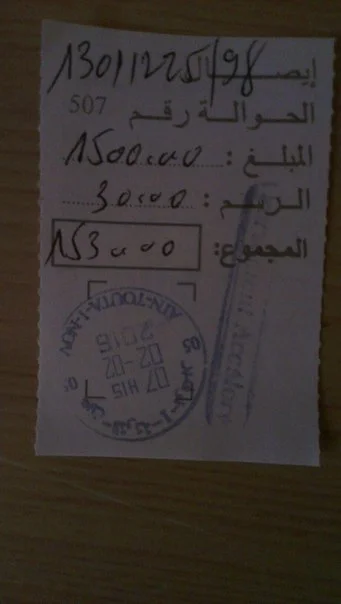 إيصال 13011225/98
الحوالة رقم 507
المبلغ : 1500.00
الرسم : 30.00
المجموع: 1530.00
AIN-TOUTA-1-NOV
07 H15
02-02
2016